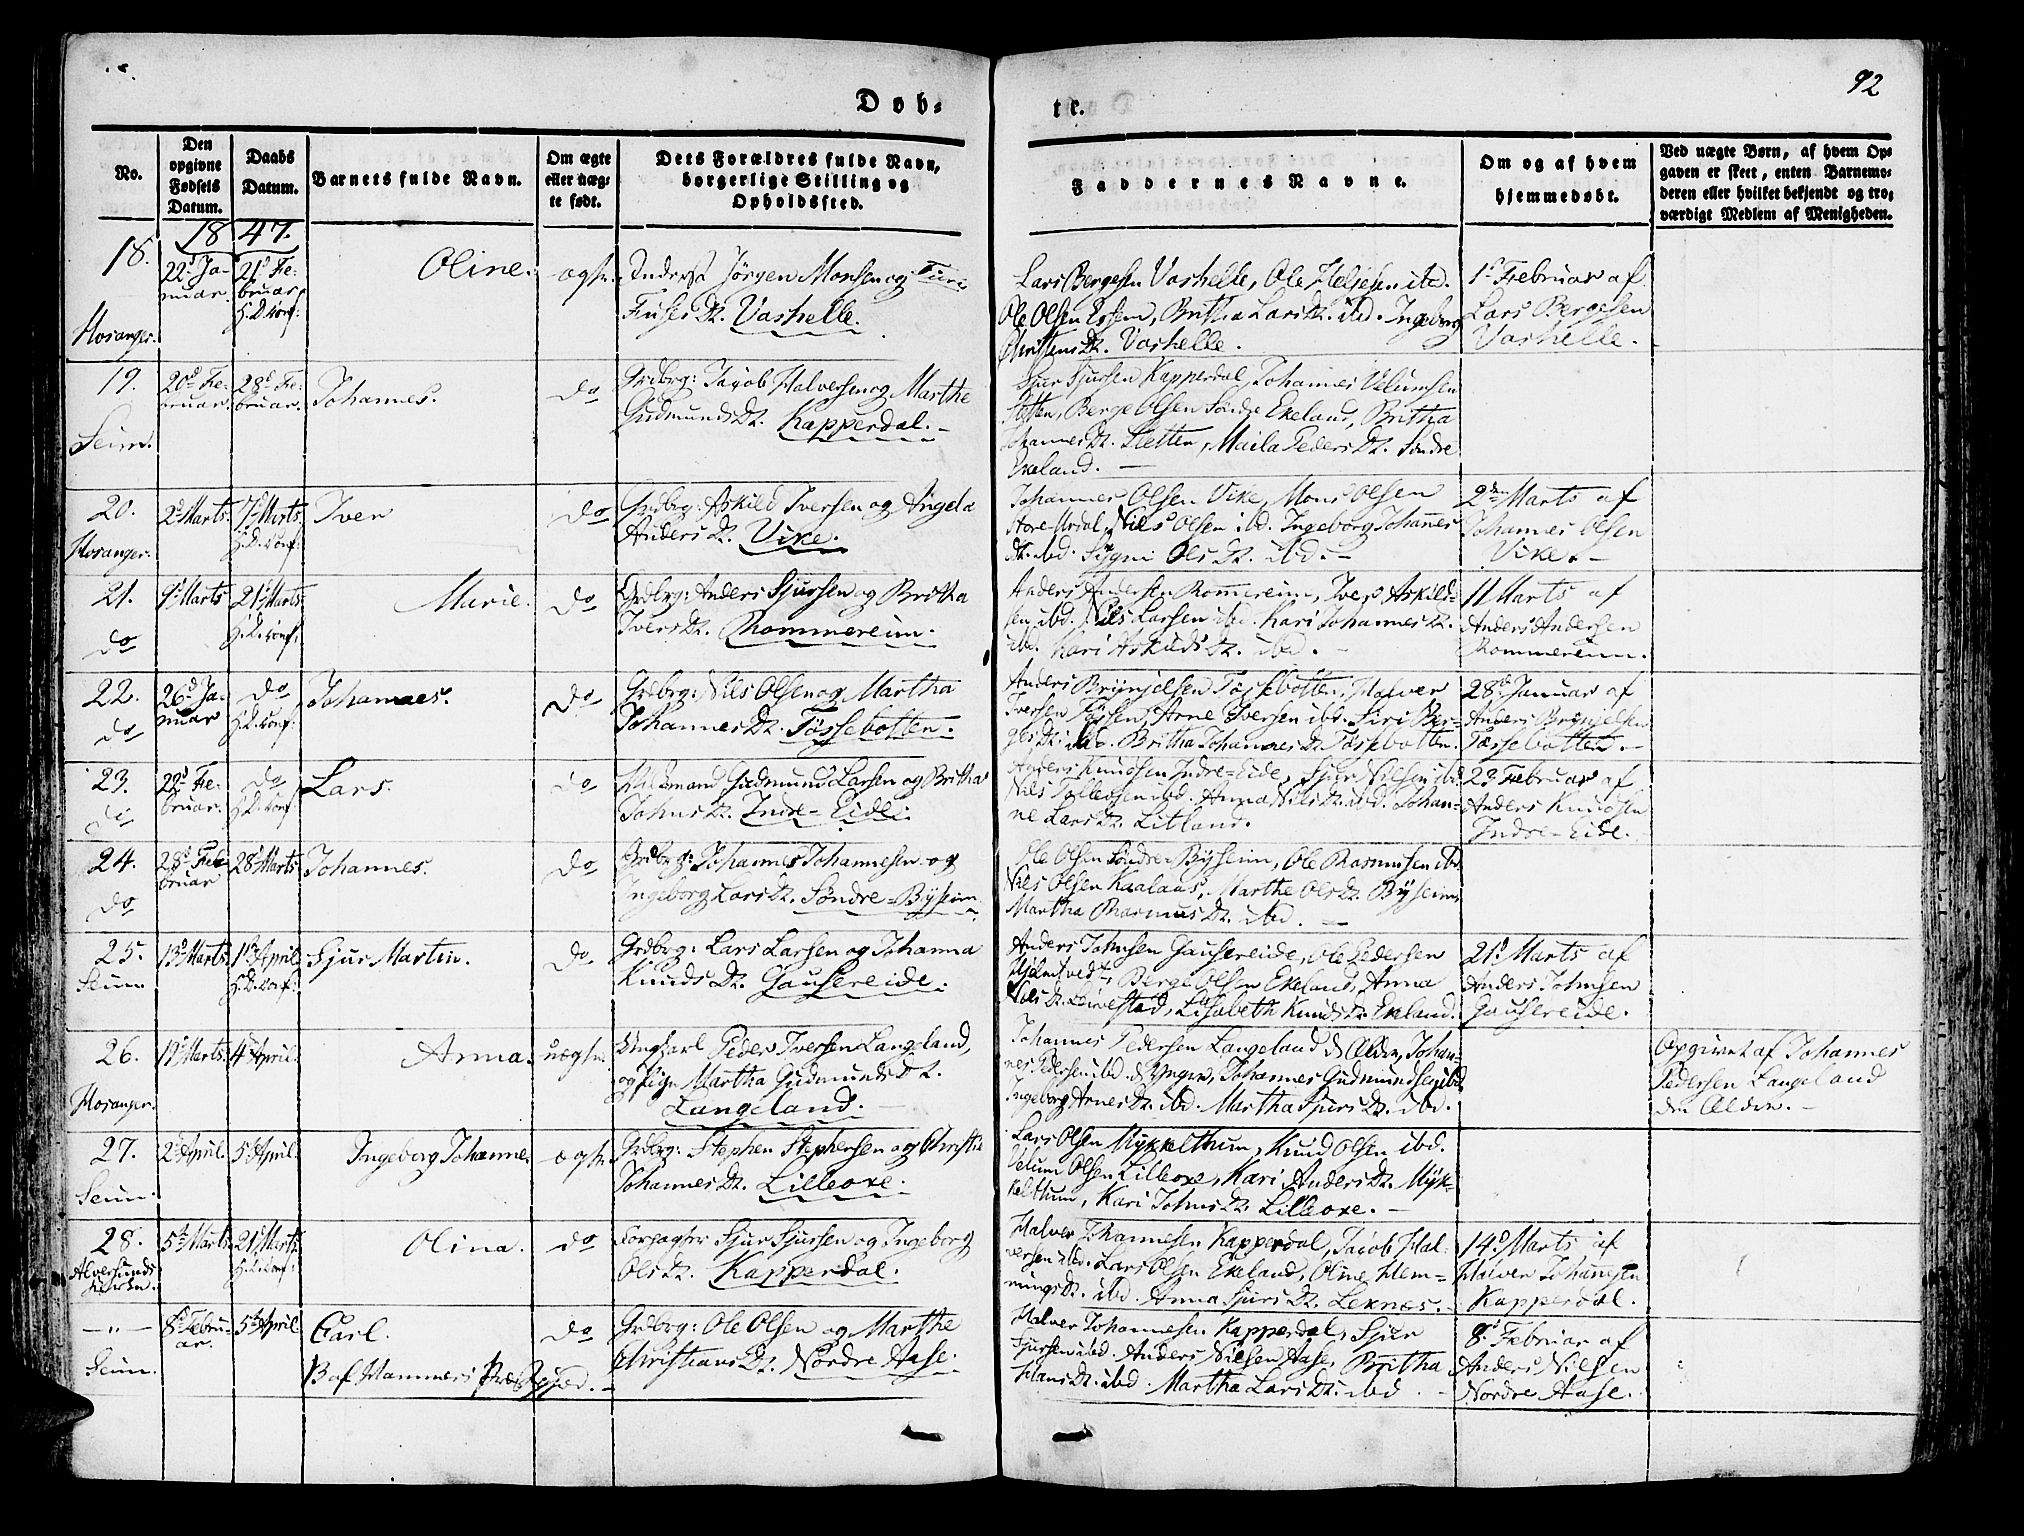 Døb-
te.
92
No.
Den opgivne Fødsels Datum.
Daabs Datum.
Barnets fulde Navn.
Om ægte eller uægte født.
Dets Forældres fulde Navn, borgerlige Stilling og Opholdssted.
Faddernes Navne.
Om og af hvem hjemmedøbt.
Ved uægte Børn, af hvem Opgaven er skeet, enten Barnemoderen eller hvilket bekjendt og troværdigt Medlem af Menigheden.
1847.
18.
Hosanger.
22d Januar.
21d Februar.
H.D. conf:
Oline.
ægte.
Inderst Jørgen Monsen og
Vashelle.
Lars Bergesen Vashelle, Ole Heljesen ibd.
Ole Olsen Espen, Britha Larsdt. ibd. Ingeborg
Christensdt. Vashelle.
1d Februar af
Lars Bergesen
Vashelle.
19.
Seim.
20d Februar.
28d Februar.
Johannes.
do
Grdbrg: Jacob Halversen og Marthe
Gudmundsdt. Kapperdal.
Sjur Sjursen Kapperdal, Johannes Velumsen
Sletten, Berge Olsen Søndre Ekeland, Britha
Johannesdt. Sletten, Maila Pedersdt. Søndre
Ekeland.
20.
Hosanger.
2d Marts.
7d Marts
H.D. conf:
Iver
do
Grdbrg: Askild Iversen og Angela
Andersdt. Vike.
Johannes Olsen Vike, Mons Olsen
Store-Urdal, Nils Olsen ibd. Ingeborg Johannes
dt. ibd. Sygni Olsdt. ibd.
2den Marts af
Johannes Olsen
Vike.
21.
do
9d Marts
21d Marts
H.D. conf:
Marie.
do
Grdbrg: Anders Sjursen og Britha
Iversdt. Rommereim.
Anders Andersen Romereim, Iver Askild-
sen ibd. Nils Larsen ibd. Kari Johannesdt.
ibd. Kari Askildsdt. ibd.
11 Marts af
Anders Andersen
Rommereim.
22.
do
26d Januar
do
H.D. conf:
Johannes.
do
Grdbrg: Nils Olsen og Martha
Johannesdt. Tøssebotten.
Anders Brynjelsen Tøssebotten, Halver
Iversen Tøssen, Arne Iversen ibd. Siri Ber-
gesdt. ibd. Britha Johannesdt. Tøssebotten.
28d Januar af
Anders Brynjelsen
Tøssebotten.
23.
22d Februar.
do
H.D. conf:
Lars.
do
Gudmund Larsen og Britha
Johnsdt. Indre-Eide.
Anders Knudsen Indre-Eide, Sjur Nilsen ibd.
Nils Tollevsen ibd. Anna Nilsdt. ibd. Johan-
ne Larsdt. Litland.
23d Februar af
Anders Knudsen
Indre-Eide.
24.
do
28d Februar
28d Marts
Johannes.
do
Grdbrg: Johannes Johannesen og
Ingeborg Larsdt. Søndre-Byseim.
Ole Olsen Søndre Byseim, Ole Rasmusen ibd.
Nils Olsen Kaalaas, Marthe Olsdt. Byseim,
Martha Rasmusdt. ibd.
25.
Seim
13d Marts
1ste April
H.D. conf:
Sjur Martin.
do
Grdbrg: Lars Larsen og Johanna
Knudsdt. Gausereide.
Anders Johnsen Gausereide, Ole Pedersen
Hjelmtvedt, Berge Olsen Ekeland, Anna
Nilsdt. Leirestad, Lisabeth Knudsdt. Ekeland.
21d Marts af
Anders Johnsen
Gausereide.
26.
Hosanger.
12d Marts.
4d April.
Anna.
uægte.
Ungkarl Peder Iversen Langeland,
og Pige Martha Gudmundsdt.
Langeland.
Johannes Pedersen Langeland d. Ældre, Johan-
nes Pedersen ibd. d. Yngre, Johannes Gudmundsen ibd.
Ingeborg Arnesdt. ibd. Martha Sjursdt. ibd.
Opgivet af Johannes
Pedersen Langeland
den Ældre.
27.
Seim.
2d April.
5d April.
Ingeborg Johanne.
ægte.
Grdbrg: Stephen Stephensen og Christie
Johannesdt. Lilleoxe.
Lars Olsen Mykkelthum, Knud Olsen ibd.
Velum Olsen Lilleoxe, Kari Andersdt. Myk-
kelthum, Kari Johnsdt. Lilleoxe.
28.
Alversunds
Kirken.
5te Marts
21d Marts.
H.D. conf:
Olina.
do
Forpagter Sjur Sjursen og Ingeborg
Olsdt. Kapperdal.
Halver Johannesen Kapperdal, Jacob Hal-
versen ibd. Lars Olsen Ekeland, Oline Hem-
mingsdt. ibd. Anna Sjursdt. Leknæs.
14d Marts af
Halver Johannesen
Kapperdal.
— " —
Seim.
8d Februar.
5te April.
Carl.
B af Hammers
do
Grdbrg: Ole Olsen og Marthe
Christiansdt. Nordre Aase.
Halver Johannesen Kapperdal, Sjur
Sjursen ibd. Anders Nilsen Aase, Britha
Hansdt. ibd. Martha Larsdt. ibd.
8d Februar af
Anders Nilsen
Nordre Aase.